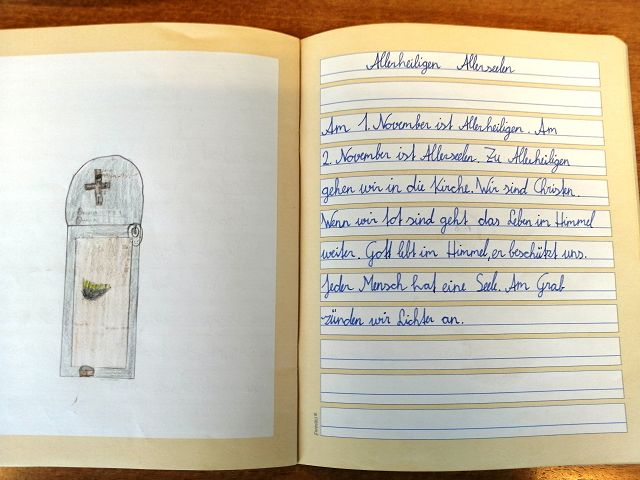 Allerheiligen Allerseelen
Am 1. November ist Allerheiligen. Am
2. November ist Allerseelen. Zu Allerheiligen
gehen wir in die Kirche. Wir sind Christen.
Wenn wir tot sind geht das Leben im Himmel
weiter. Gott lebt im Himmel, er beschützt uns.
Jeder Mensch hat eine Seele. Am Grab
zünden wir Lichter an.